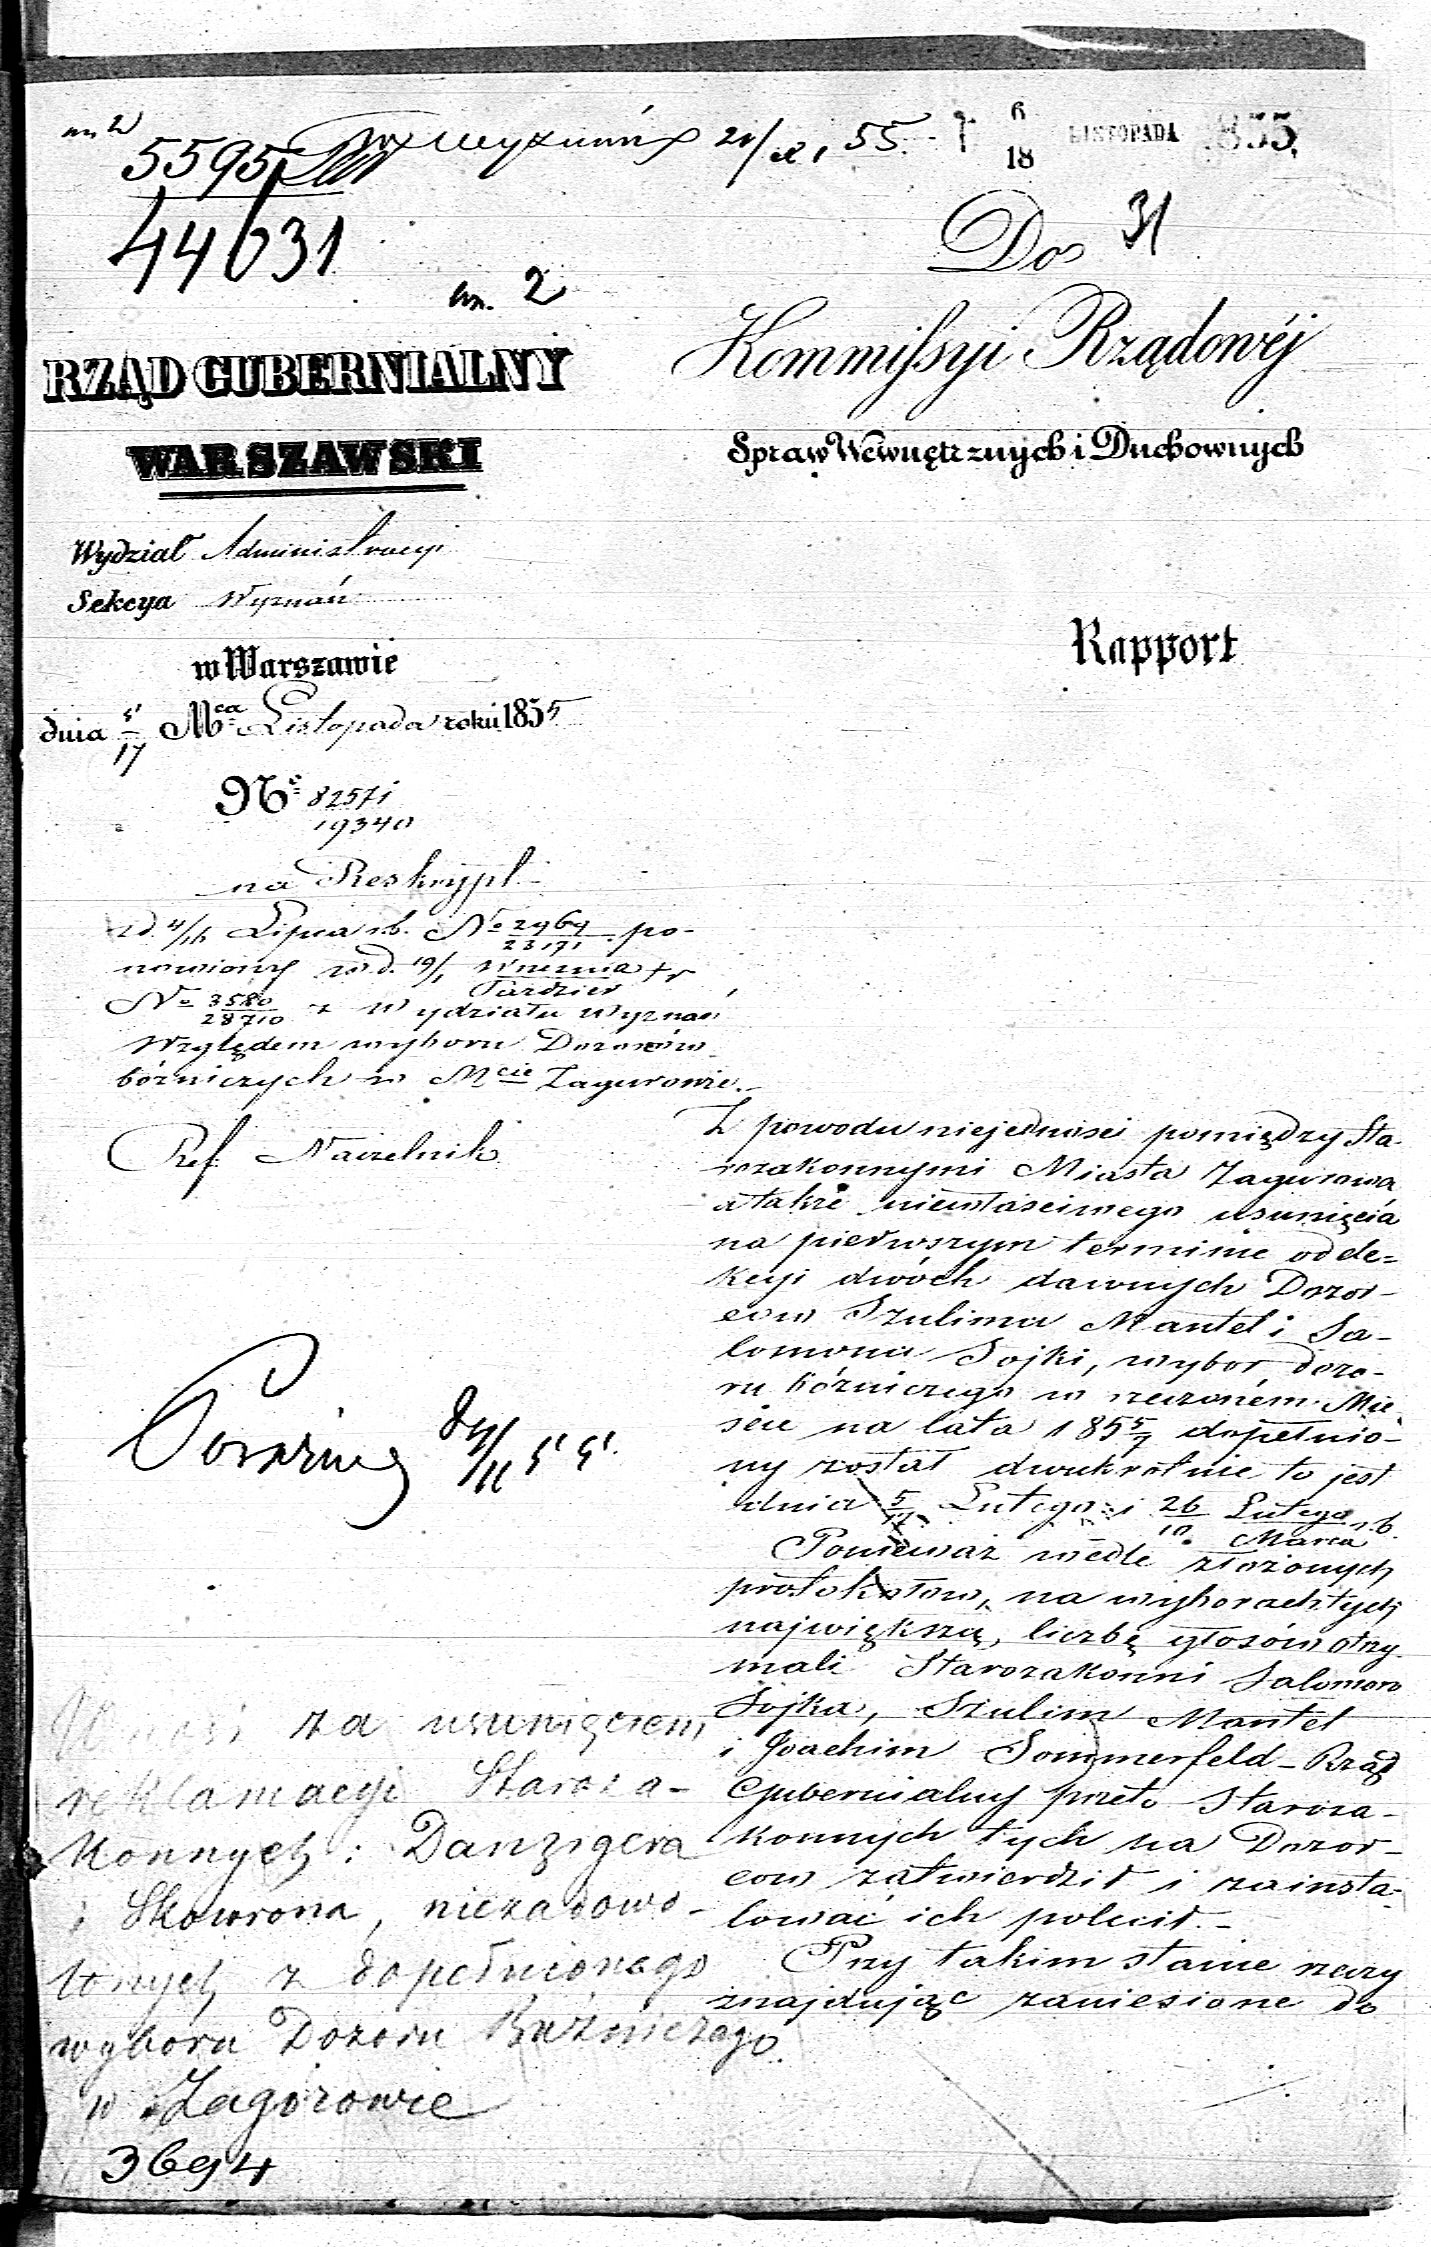 5595
44631
20/XI 55.
6
18
LISTOPADA 1855.
31
Do
Kommissyi Rządowéj
Spraw Wewnętrznych i Duchownych
Rapport
2
RZĄD GUBERNIALNY
WARSZAWSKI
Wydział Administracyi
Sekcya Wyznań
w Warszawie
dnia 5/17 Mca Listopada roku 1855
No 82571
19340
na Reskrypt
z d. 4/16 Lipca r.b. No 2969/23171 po-
nowiony w d. 19/1 Września/Paździer
No 3580/28710 z Wydziału Wyznań
Względem wyboru Dozorców
bóżniczych w Mcie Zagurowie.
Ref. Naczelnik
Z powodu niejedności pomiędzy Sta-
rozakonnymi Miasta Zagurowa
a także niewłaściwego usunięcia
na pierwszym terminie od ele-
kcyi dwóch dawnych Dozor-
ców Szulima Mantel i Sa-
lomona Sojki, wybor dozo-
ru bóżniczego w rzeczoném Mie-
ście na lata 1855/7 dopełnio-
ny został dwukrotnie to jest
dnia 5/17 Lutego i 26/10 Lutego/Marca r.b.
Ponieważ wedle złożonych
protokołow, na wyborach tych
największą liczbę głosów otrzy-
mali Starozakonni Salomon
Sojka, Szulim Mantel
i Joachim Sommerfeld – Rząd
Gubernialny przeto Staroza-
konnych tych na Dozor-
ców zatwierdził i zainsta-
lować ich polecił.–
Przy takim stanie rzeczy
znajdując zaniesione do
11 55.
Wnosi za usunięciem
reklamacyi Staroza-
konnych: Danzigera
i Skowrona, niezadowo-
lonych z dopełnionego
wyboru Dozoru Bóżniczego
w Zagórowie
3694